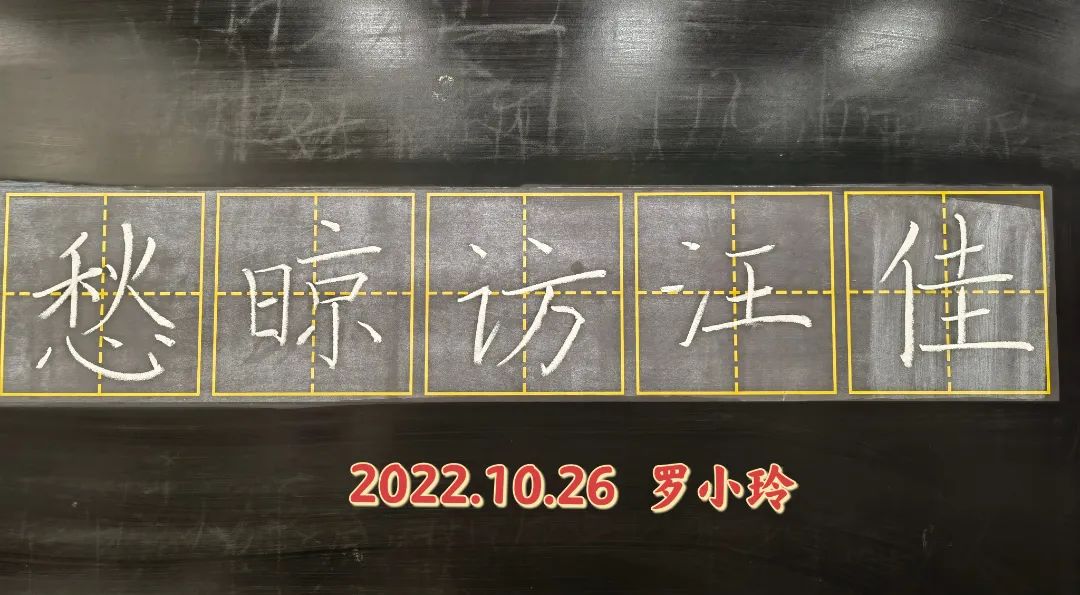 愁晾访汪佳
2022.10.26 罗小玲